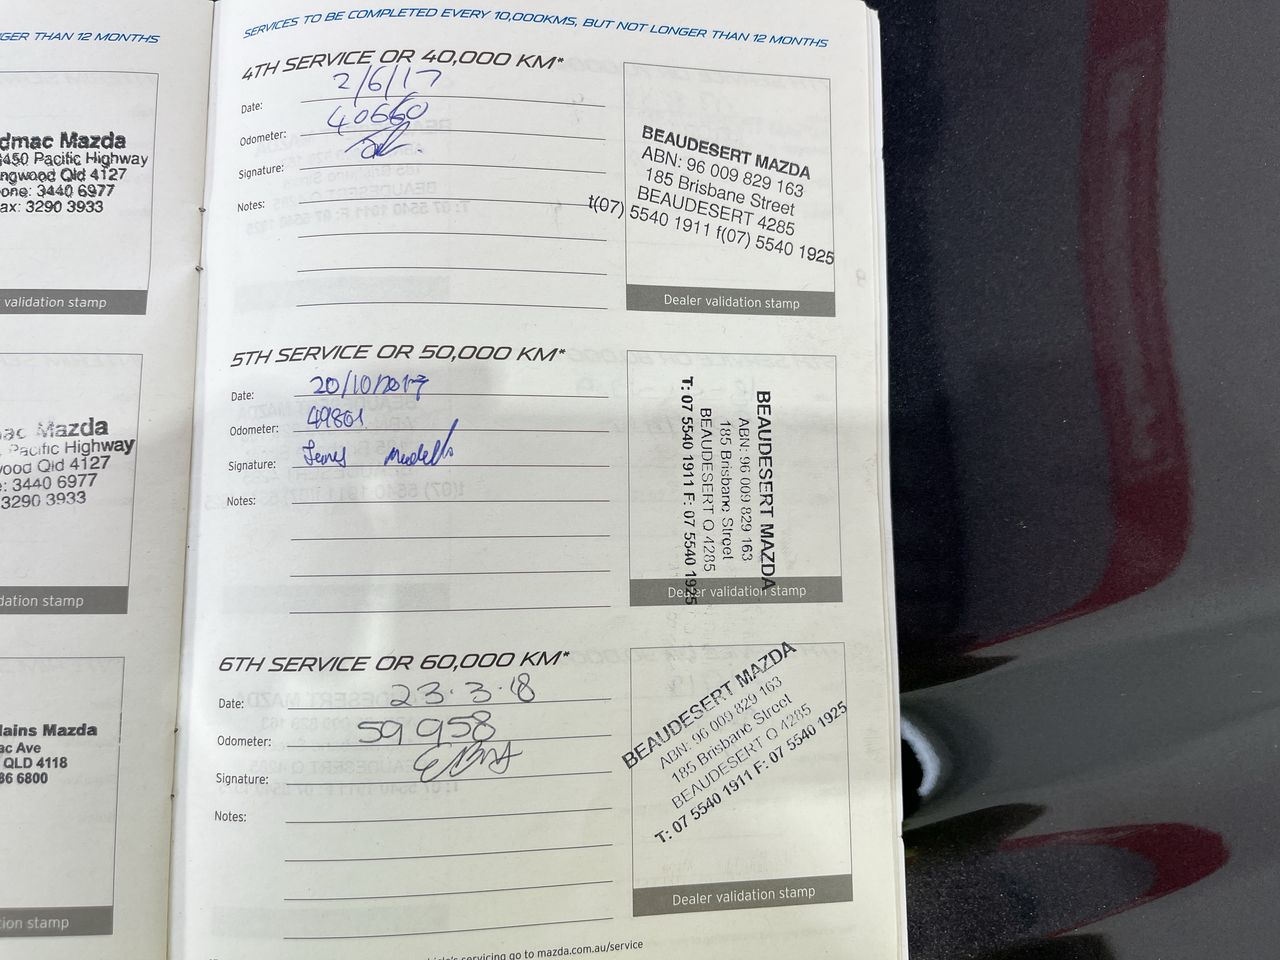 GER THAN 12 MONTHS
dmac Mazda
3450 Pacific Highway
ngwood Qld 4127
one: 3440 6977
ax: 3290 3933
validation stamp
ac Mazda
Pacific Highway
wood Qld 4127
e: 3440 6977
3290 3933
dation stamp
lains Mazda
ac Ave
QLD 4118
86 6800
ion stamp
SERVICES TO BE COMPLETED EVERY 10,000KMS, BUT NOT LONGER THAN 12 MONTHS
4TH SERVICE OR 40,000 KM*
Date: 2/6/17
Odometer: 40660
Signature:
Notes:
BEAUDESERT MAZDA
ABN: 96 009 829 163
185 Brisbane Street
BEAUDESERT 4285
t(07) 5540 1911 f(07) 5540 1925
Dealer validation stamp
5TH SERVICE OR 50,000 KM*
Date: 20/10/2017
Odometer: 49801
Signature:
Notes:
BEAUDESERT MAZDA
ABN: 96 009 829 163
185 Brisbane Street
BEAUDESERT Q 4285
T: 07 5540 1911 F: 07 5540 1925
Dealer validation stamp
6TH SERVICE OR 60,000 KM*
Date: 23.3.18
Odometer: 59958
Signature:
Notes:
BEAUDESERT MAZDA
ABN: 96 009 829 163
185 Brisbane Street
BEAUDESERT Q 4285
T: 07 5540 1911 F: 07 5540 1925
Dealer validation stamp
servicing go to mazda.com.au/service